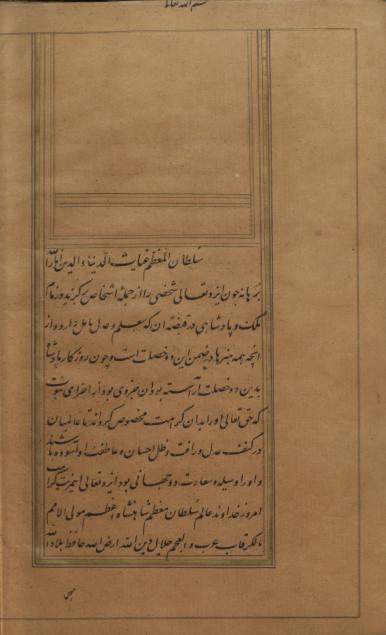 بسم الله تعالی
سلطان المعظم غیاث الدنیا و الدین انار الله
برهانه چون ایزد تعالی شخصی را از جمله اشخاص گزید و زمام
ملک و پادشاهی در قبضه آن که بعلم و عدل
آنچه همه هنرها در ضمن این دو خصلت است و چون روزگار پادشاه
بدین دو خصلت آراسته بود آن جزوی بود از اجزای نبوت
که حق تعالی او را بدان کرامت مخصوص کرداند تا عالمیان
در کنف عدل و رافت و ظل احسان و عاطفت او آسوده باشند
و او را وسیله سعادت دو جهانی بود ایزد تعالی این
امروز خداوند عالم سلطان معظم شاهنشاه اعظم مولی الامم
مالک رقاب عرب و العجم جلال دین الله ارض الله حافظ بلاد الله